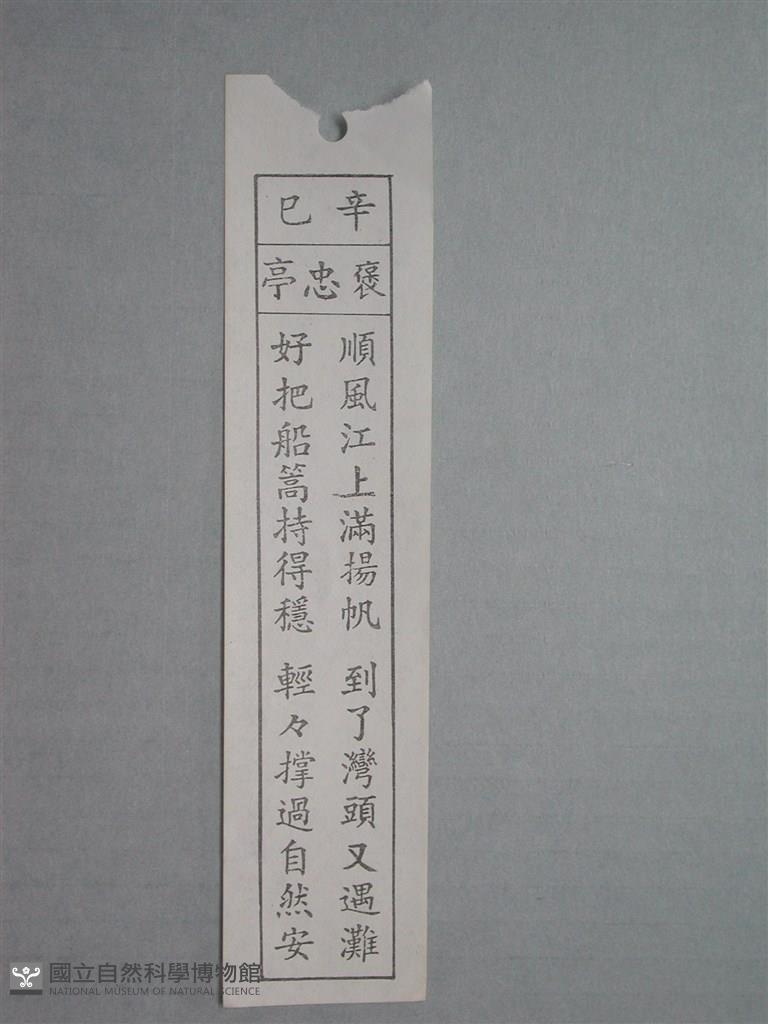 辛巳
褒忠亭
順風江上滿揚帆 到了灣頭又遇灘
好把船篙持得穩 輕々撑過自然安
國立自然科學博物館
NATIONAL MUSEUM OF NATURAL SCIENCE